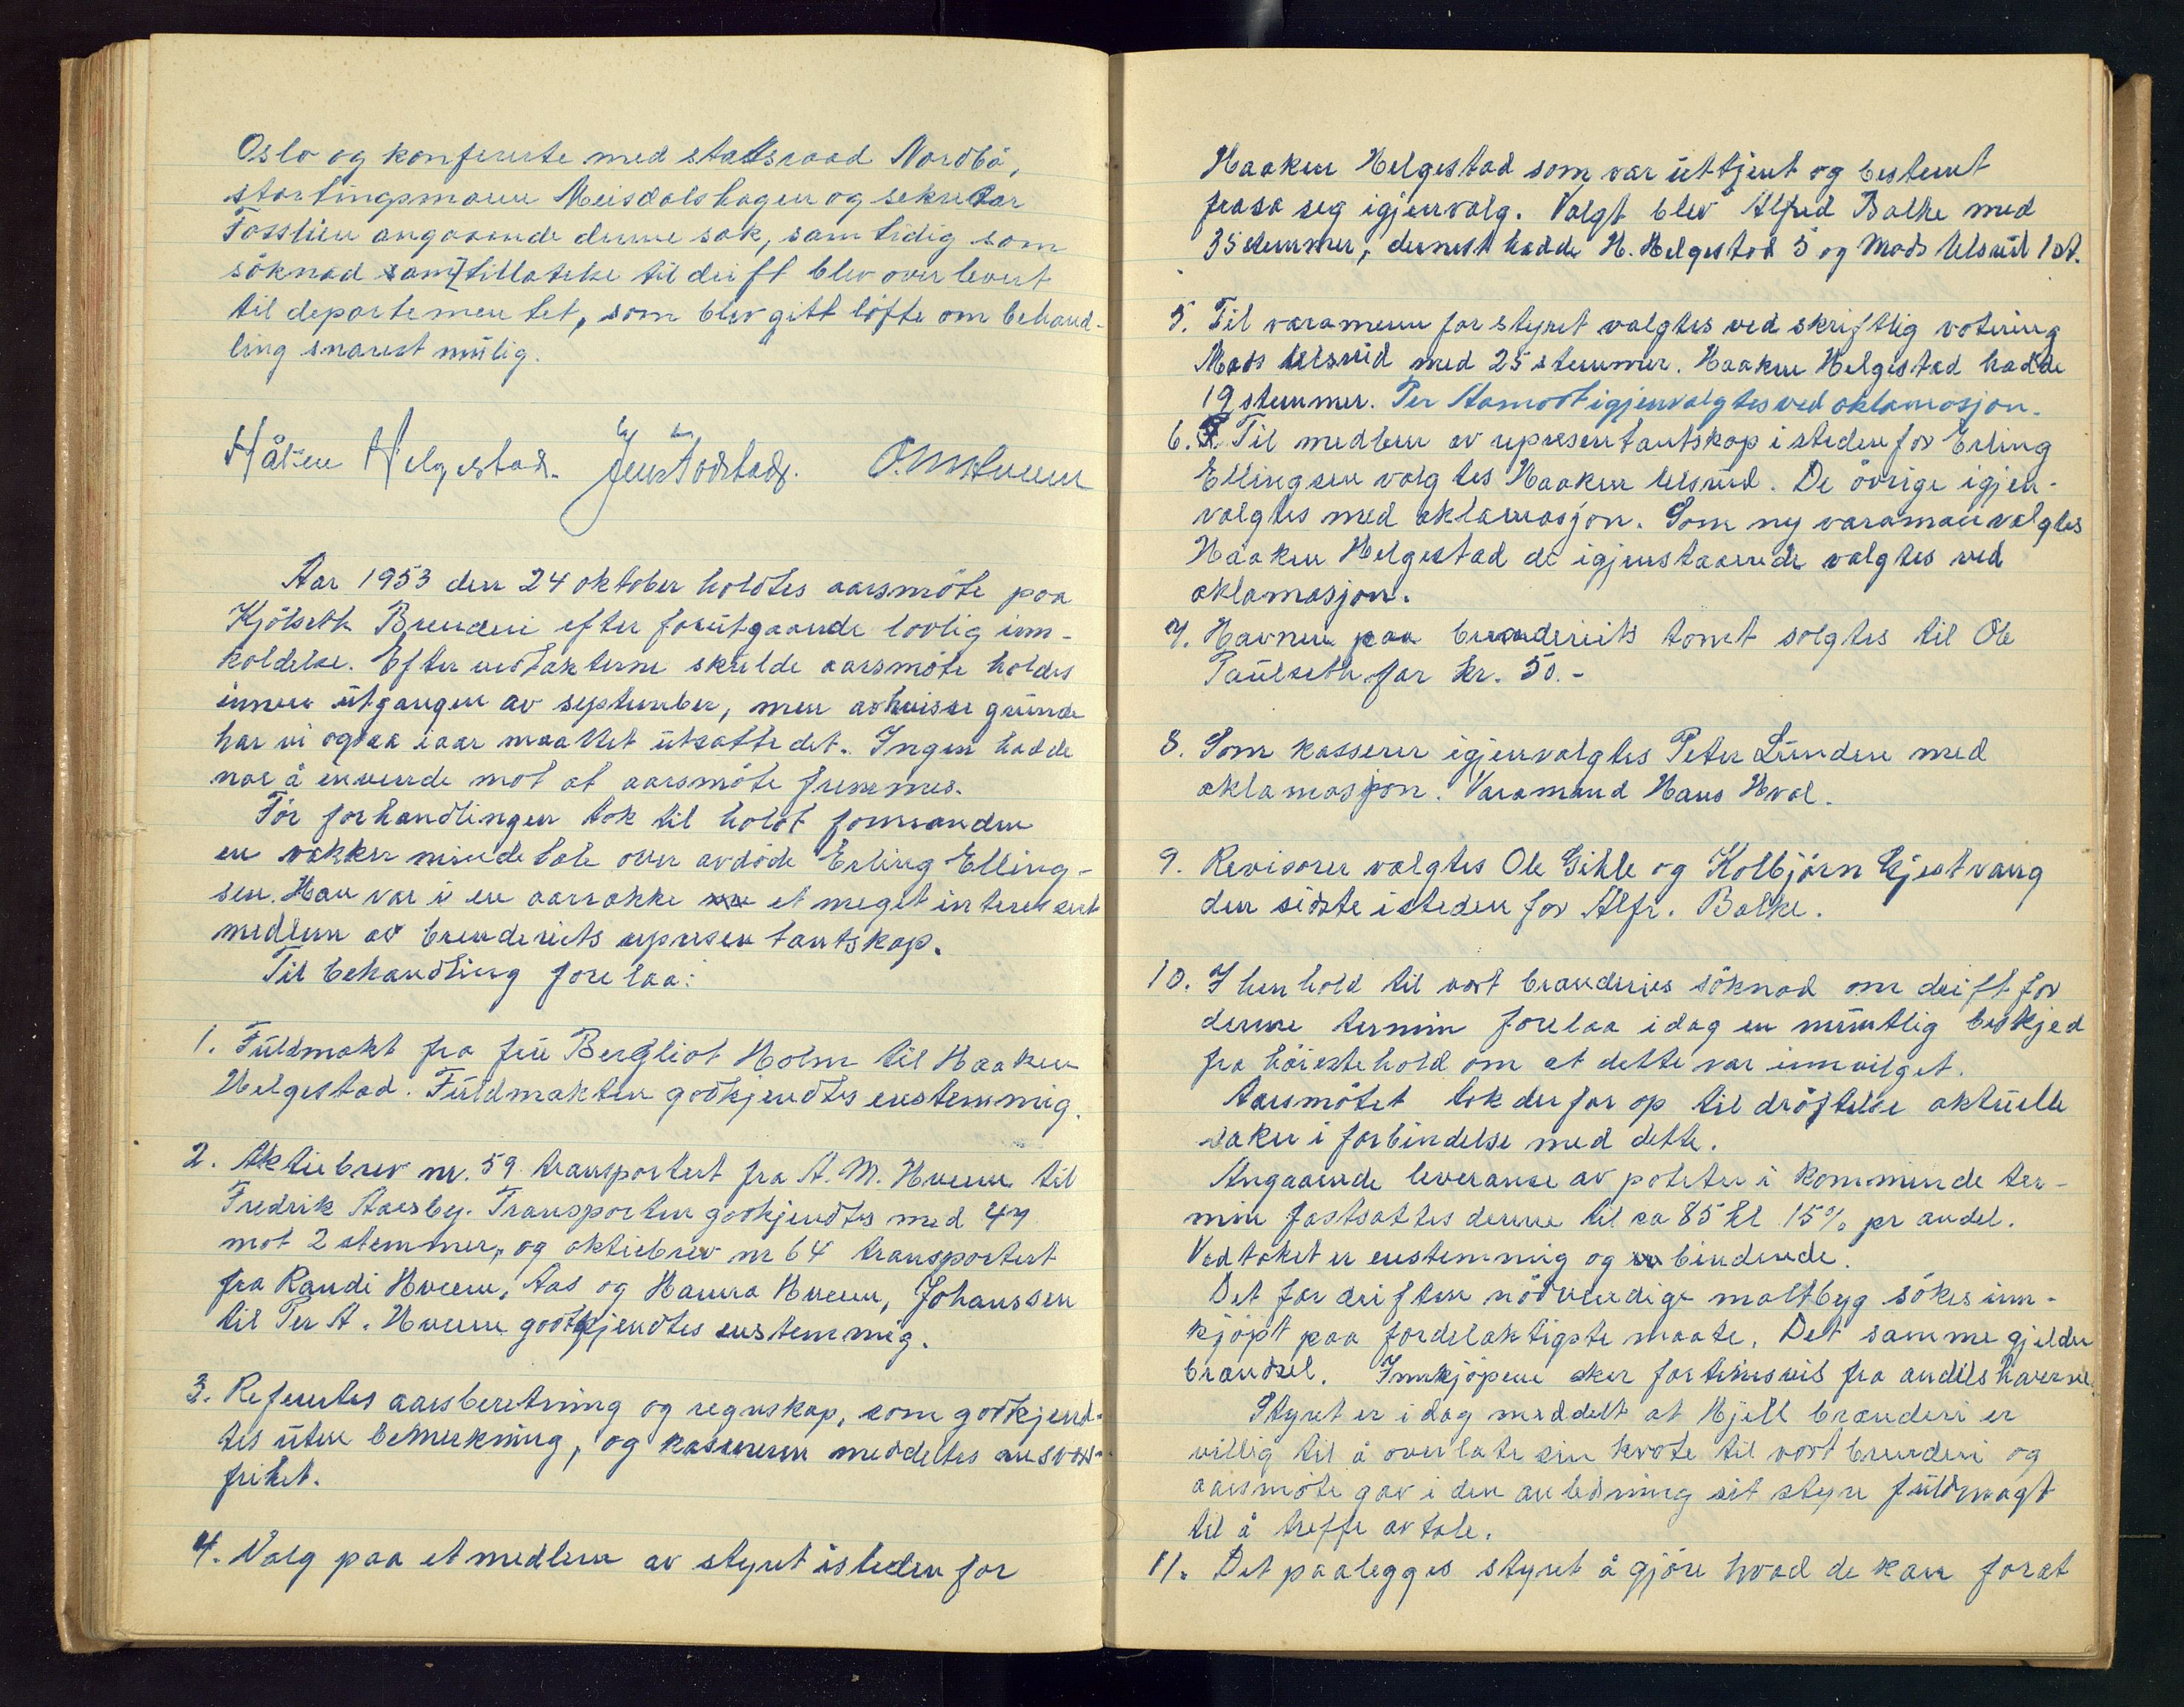 Oslo og konfererte med statsraad Nordbö,
stortingsmann Meisdalshagen og sekretær
Fosslien angaaende denne sak, samtidig som
söknad om tillatelse til drift blev overlevert
til departementet, som blev gitt löfte om behand-
ling snarest mulig.
Håken Helgestad. Jens Todstad. O. M. Hveem
Aar 1953 den 24 oktober holdtes aarsmöte paa
Kjölseth Brenderi efter forutgaaende lovlig inn-
kaldelse. Efter vedtakterne skulde aarsmöte holdes
innen utgangen av september, men av visse grunde
har vi ogsaa iaar maattet utsatte det. Ingen hadde
noe å invende mot at aarsmöte fremmes.
För forhandlingen tok til holdt formanden
en vakker mindetale over avdöde Erling Elling-
sen. Han var i en aarrekke et meget interessert
medlem av brenderiets representantskap.
Til behandling forelaa:
1. Fuldmakt fra fru Bergliot Holm til Haaken
Helgestad. Fuldmakten godkjendtes enstemmig.
2. Aktiebrev nr. 59 transportert fra A. M. Hveem til
Fredrik Aaesby. Transporten godkjendtes med 47
mot 2 stemmer, og aktiebrev nr 64 transportert
fra Randi Hveem, Aas og Hanna Hveem, Johanssen
til Per A. Hveem godtkjendtes enstemmig.
3. Refertes aarsberetning og regnskap, som godkjend-
tes uten bemerkning, og kassereren meddeltes ansvars-
frihet.
4. Valg paa et medlem av styret isteden for
Haaken Helgestad som var uttjent og bestemt
frasa seg igjenvalg. Valgt blev Alfred Balke med
35 stemmer, dernest hadde H. Helgestad 5 og Mads Ulsrud 1 st.
5. Til varamenn for styret valgtes ved skriftlig votering
Mads Ulsrud med 25 stemmer. Haaken Helgestad hadde
19 stemmer. Per Aamodt igjenvalgtes ved aklamasjon.
6. Til medlem av representantskap isteden for Erling
Ellingsen valgtes Haaken Ulsrud. De övrige igjen-
valgtes med aklamasjon. Som ny varaman valgtes
Haaken Helgestad de igjenstaaende valgtes ved
aklamasjon.
7. Havnen paa brænderiets tomt solgtes til Ole
Paulseth for kr. 50.-
8. Som kasserer igjenvalgtes Peter Lunden med
aklamasjon. Varamand Hans Hval.
9. Revisorer valgtes Ole Gihle og Kolbjörn Gjestvang
den sidste isteden for Alfr. Balke.
10. I henhold til vort brænderies söknad om drift for
denne termin forelaa idag en muntlig beskjed
fra höieste hold om at dette var innvilget.
Aarsmötet tok derfor op til dröftelse aktuelle
saker i forbindelse med dette.
Angaaende leveranse av poteter i kommende ter-
min fastsattes denne til ca 85 hl 15% pr andel.
Vedtaket er enstemmig og bindende.
Det for driften nödvendige maltbyg sökes inn-
kjöpt paa fordelaktigste maate. Det samme gjelder
brændsel. Innkjöpene sker fortrinsvis fra andelshaverne.
Styret er idag meddelt at Hjell brænderi er
villig til å overlate sin kvote til vort brenderi og
aarsmöte gav i den anledning sit styre fuldmagt
til å treffe avtale.
11. Det paalegges styret å gjöre hvad de kan forat